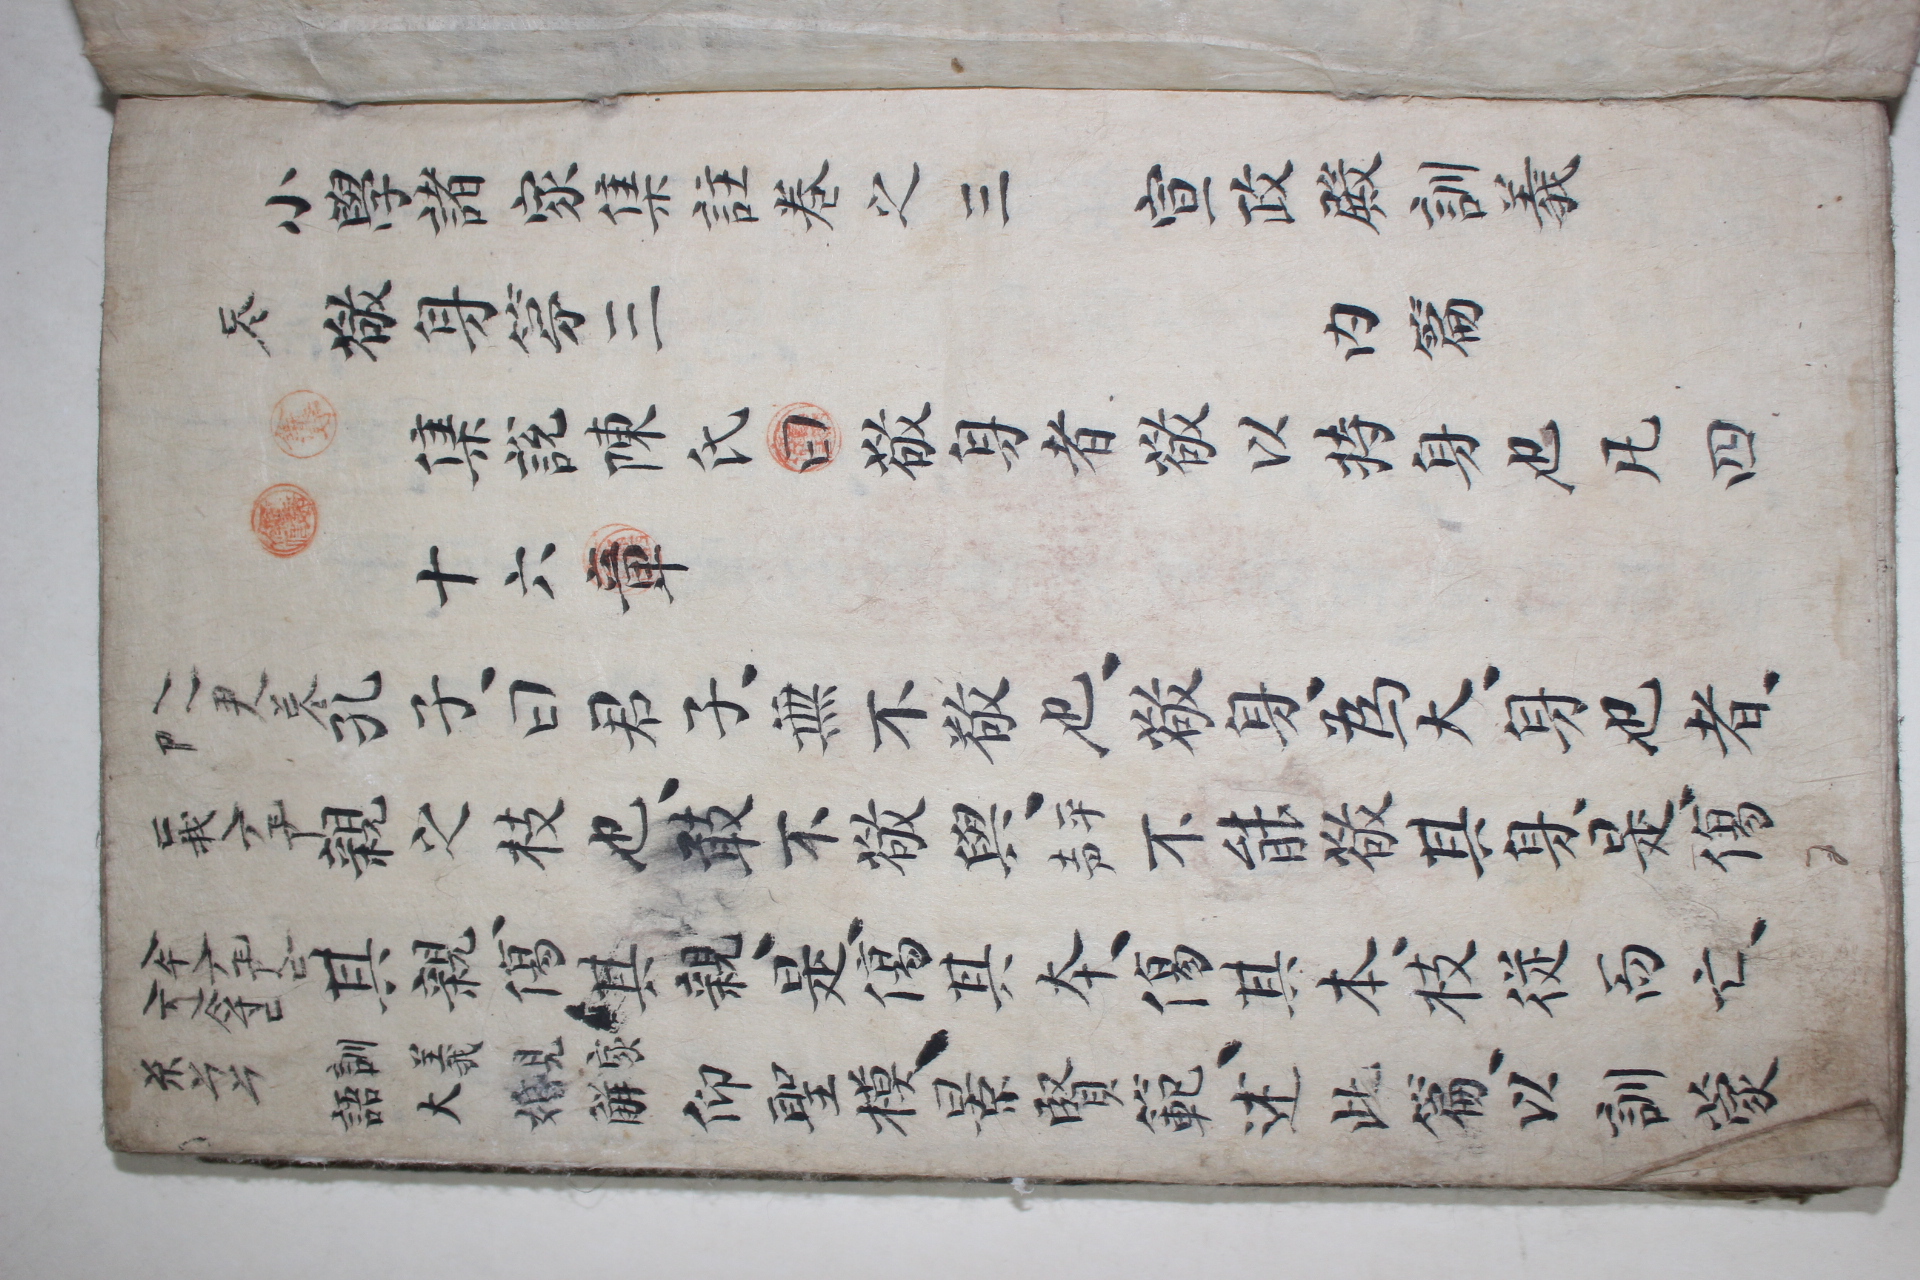 小學諸家集註卷之三 宣政殿訓義
敬身第三 內篇
集說陳氏曰敬身者敬以持身也凡四
十六章
孔子曰君子無不敬也敬身爲大身也者
親之枝也敢不敬與平聲不能敬其身是傷
其親傷其親是傷其本傷其本枝從而亡
訓義
語大
仰聖模景賢範述此篇以訓蒙